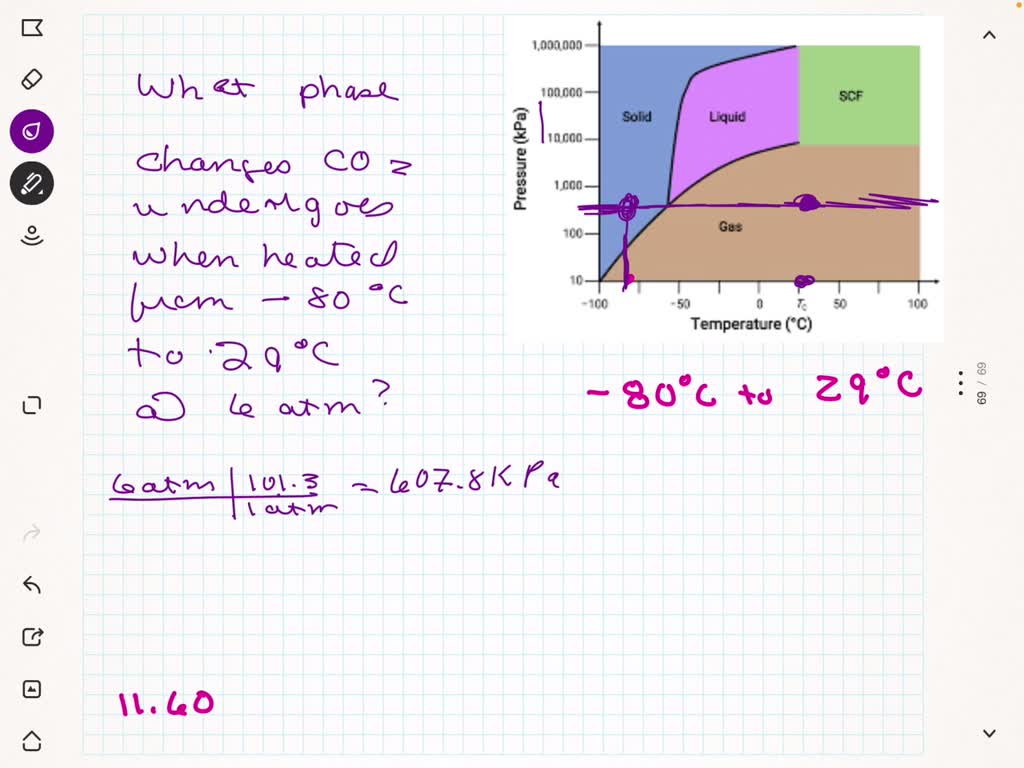 What phase
changes CO2
undergoes
when heated
from - 80 °C
to 29°C
a) 6 atm?
6 atm | 101.3 = 607.8 KPa
1 atm
11.60
1,000,000
100,000
10,000
1,000
100
10
Pressure (kPa)
Solid
Liquid
SCF
Gas
-100
-50
0
Tc
50
100
Temperature (°C)
-80°C to 29°C
69 / 69